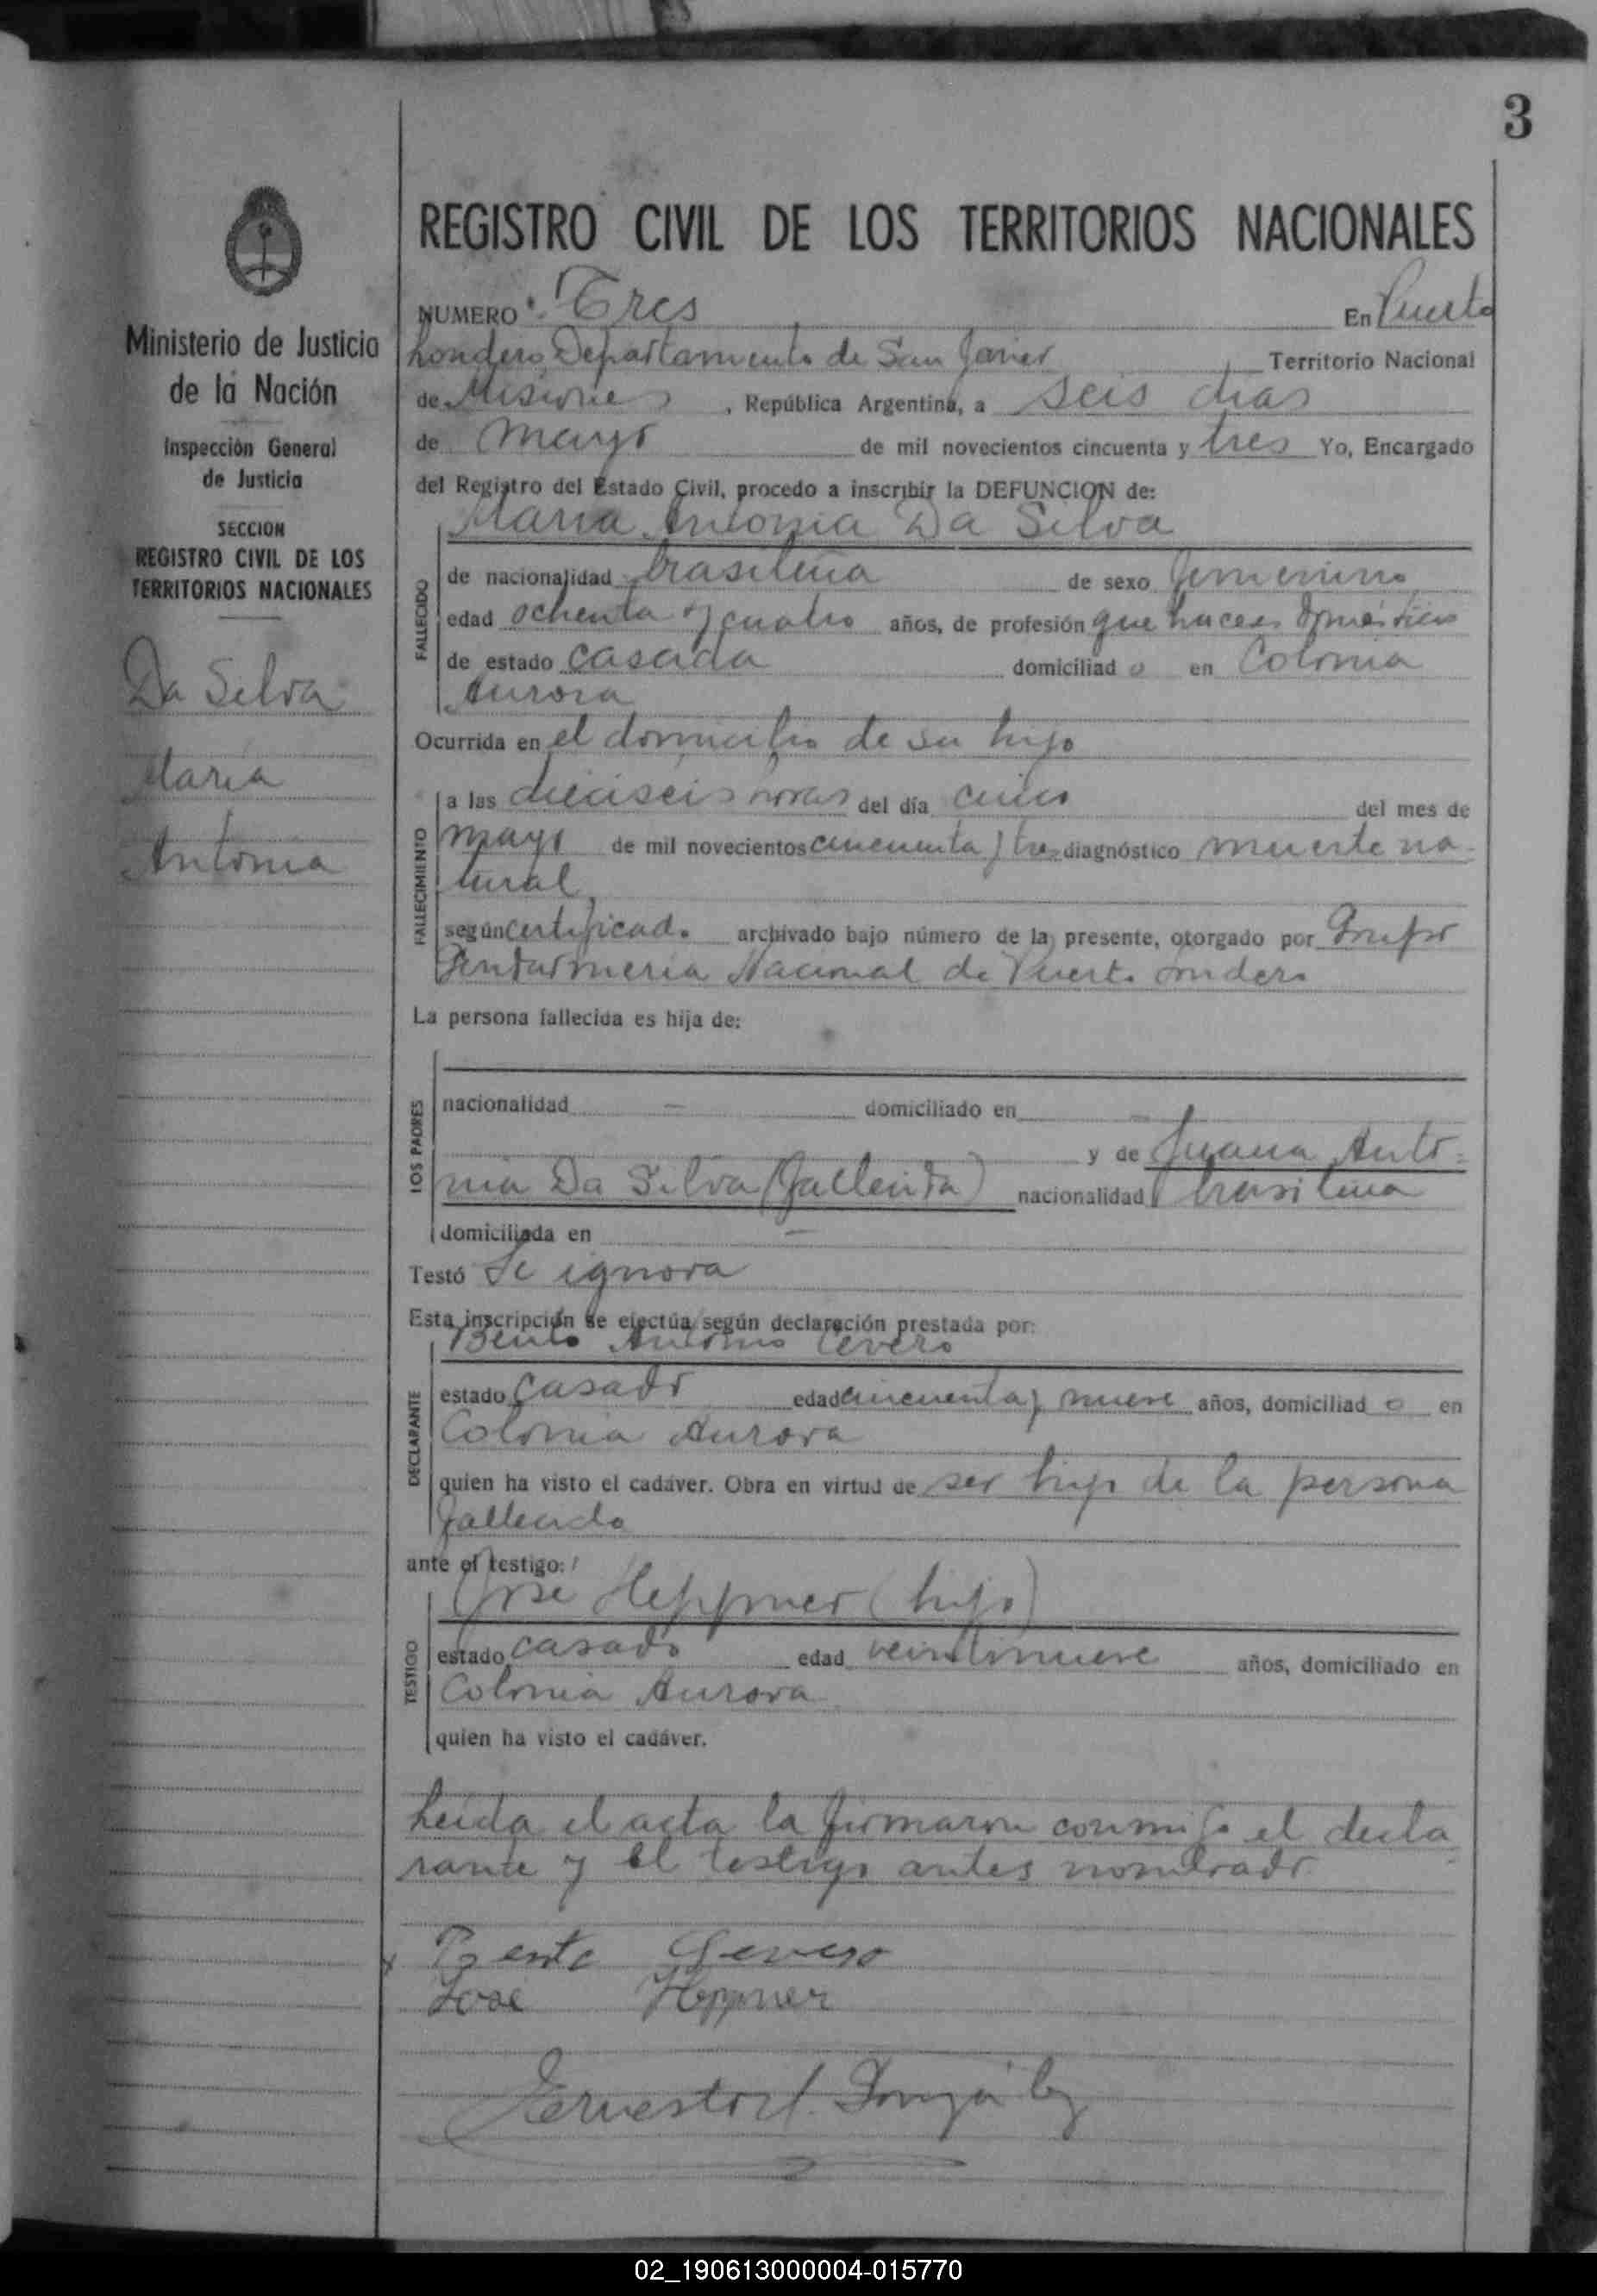 3
REGISTRO CIVIL DE LOS TERRITORIOS NACIONALES
Ministerio de Justicia
de la Nación
Inspección General
de Justicia
SECCION
REGISTRO CIVIL DE LOS
TERRITORIOS NACIONALES
Da Silva
Maria
Antonia
NUMERO Tres En Puerto
Londero, Departamento de San Javier Territorio Nacional
de Misiones, República Argentina, a seis dias
de mayo de mil novecientos cincuenta y tres Yo, Encargado
del Registro del Estado Civil, procedo a inscribir la DEFUNCION de:
Maria Antonia Da Silva
FALLECIDO
de nacionalidad brasileña de sexo femenino
edad ochenta y cuatro años, de profesión que haceres domésticos
de estado casada domiciliado en Colonia
Aurora
Ocurrida en el domicilio de su hijo
FALLECIMIENTO
a las dieciseis horas del día cinco del mes de
mayo de mil novecientos cincuenta y tres diagnóstico muerte na-
tural
según certificado archivado bajo número de la presente, otorgado por Grupo
Gendarmeria Nacional de Puerto Londero
La persona fallecida es hija de:
LOS PADRES
nacionalidad — domiciliado en —
y de Juana Anto-
nia Da Silva (fallecida) nacionalidad brasileña
domiciliada en —
Testó Se ignora
Esta inscripción se efectúa según declaración prestada por:
Bento Antonio Cevero
DECLARANTE
estado casado edad cincuenta y nueve años, domiciliado en
Colonia Aurora
quien ha visto el cadáver. Obra en virtud de ser hijo de la persona
fallecida
ante el testigo:
José Heppner (hijo)
TESTIGO
estado casado edad veintinueve años, domiciliado en
Colonia Aurora
quien ha visto el cadáver.
Leida el acta la firmaron conmigo el decla
rante y el testigo antes nombrado.
Bento Severo
Jose Heppner
Ernesto González
02_190613000004-015770